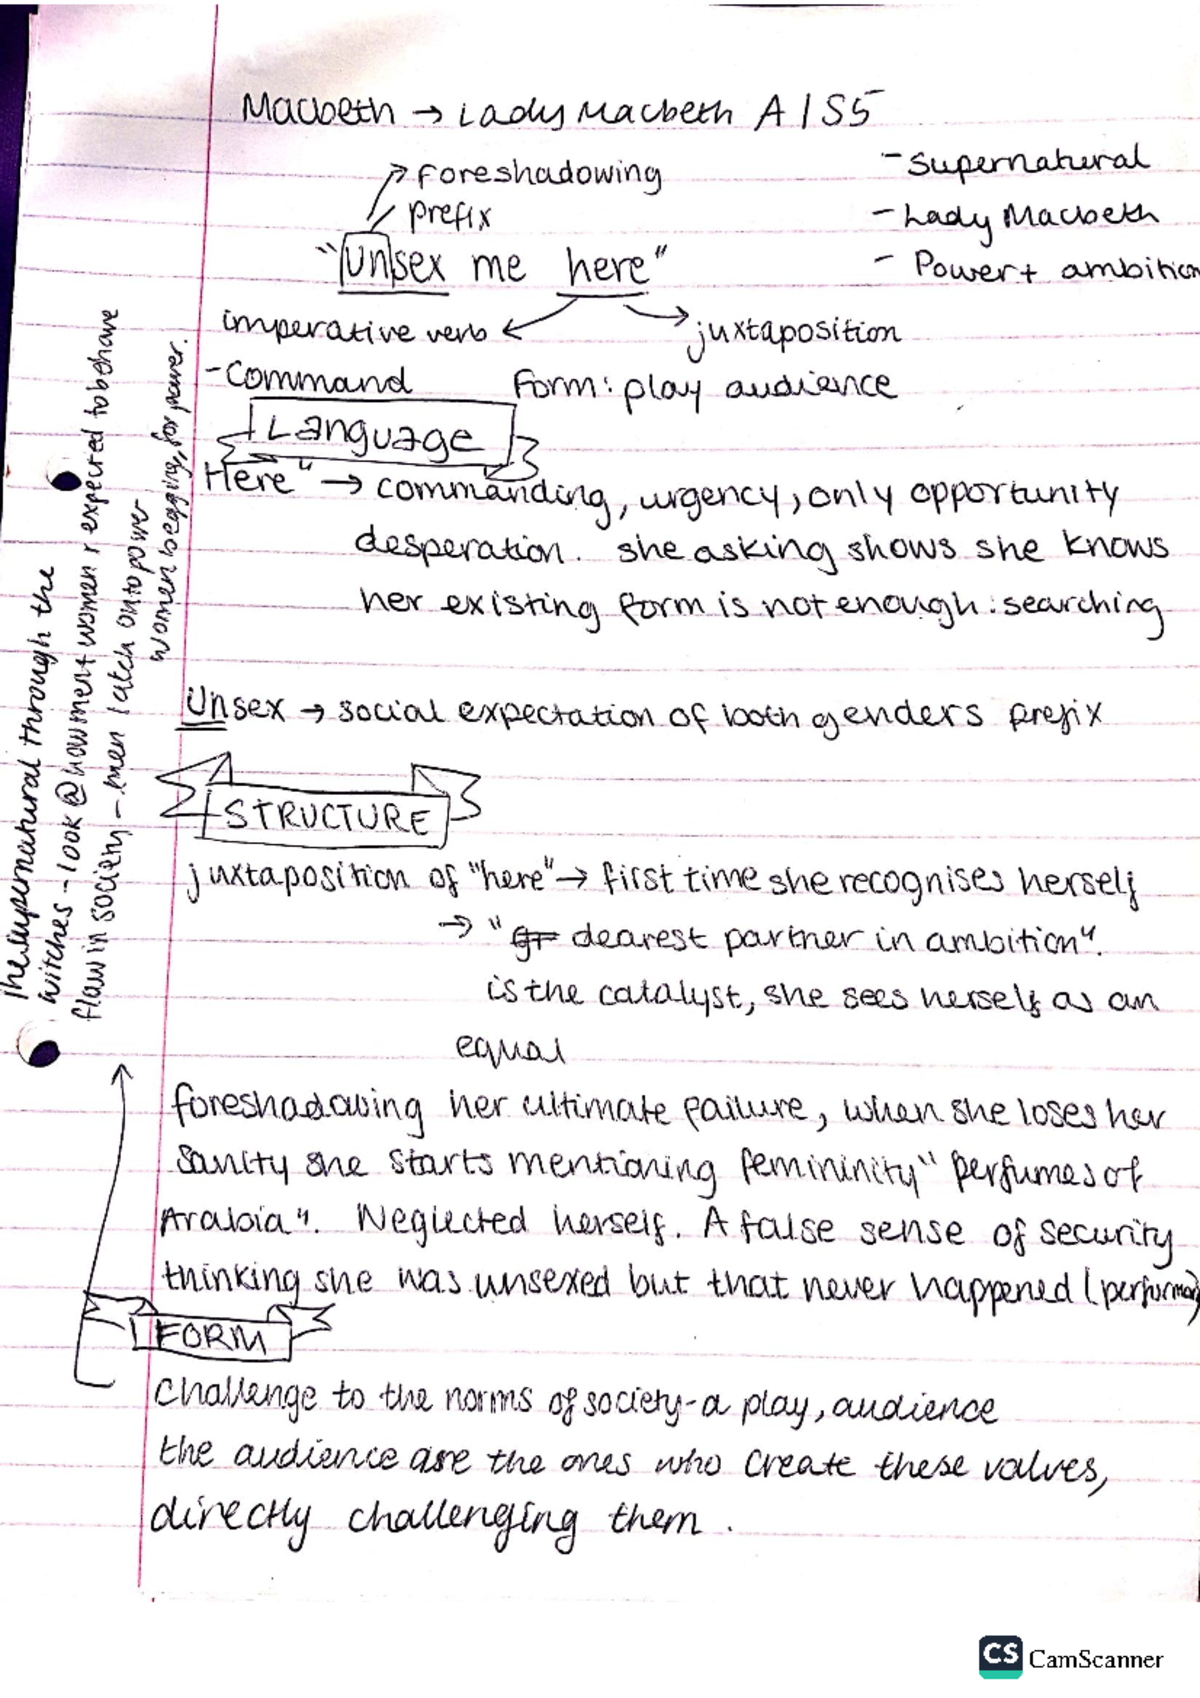 Macbeth → Lady Macbeth A1S5
foreshadowing
prefix
- Supernatural
- Lady Macbeth
- Power + ambition
"Unsex me here"
imperative verb
juxtaposition
- Command
Form: play audience
Language
Here" → commanding, urgency, only opportunity
desperation. she asking shows she knows
her existing form is not enough: searching
Unsex → social expectation of both genders prefix
STRUCTURE
juxtaposition of "here" → first time she recognises herself
→ "gr dearest partner in ambition".
is the catalyst, she sees herself as an
equal
foreshadowing her ultimate failure, when she loses her
sanity she starts mentioning femininity "perfumes of
Arabia". Neglected herself. A false sense of security
thinking she was unsexed but that never happened (performa
FORM
challenge to the norms of society - a play, audience
the audience are the ones who create these values,
directly challenging them.
The supernatural through the
witches - look @ how men + women r expected to behave
flaw in society - men latch onto power
women begging, for power.
CS CamScanner